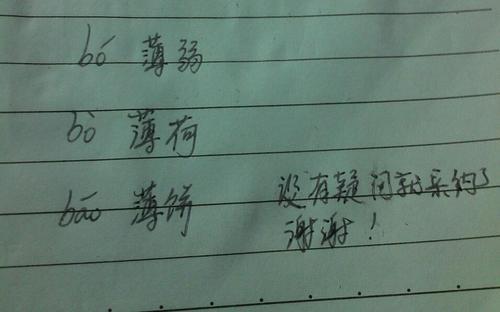 bó 薄弱
bò 薄荷
báo 薄饼
没有疑问就采纳了
谢谢！